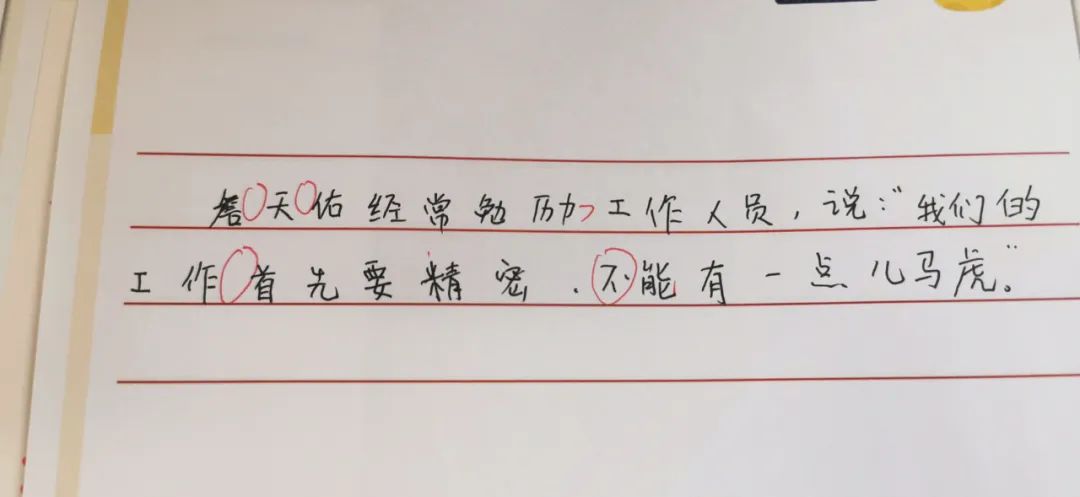 詹天佑经常勉励工作人员，说：“我们的
工作首先要精密，不能有一点儿马虎。”